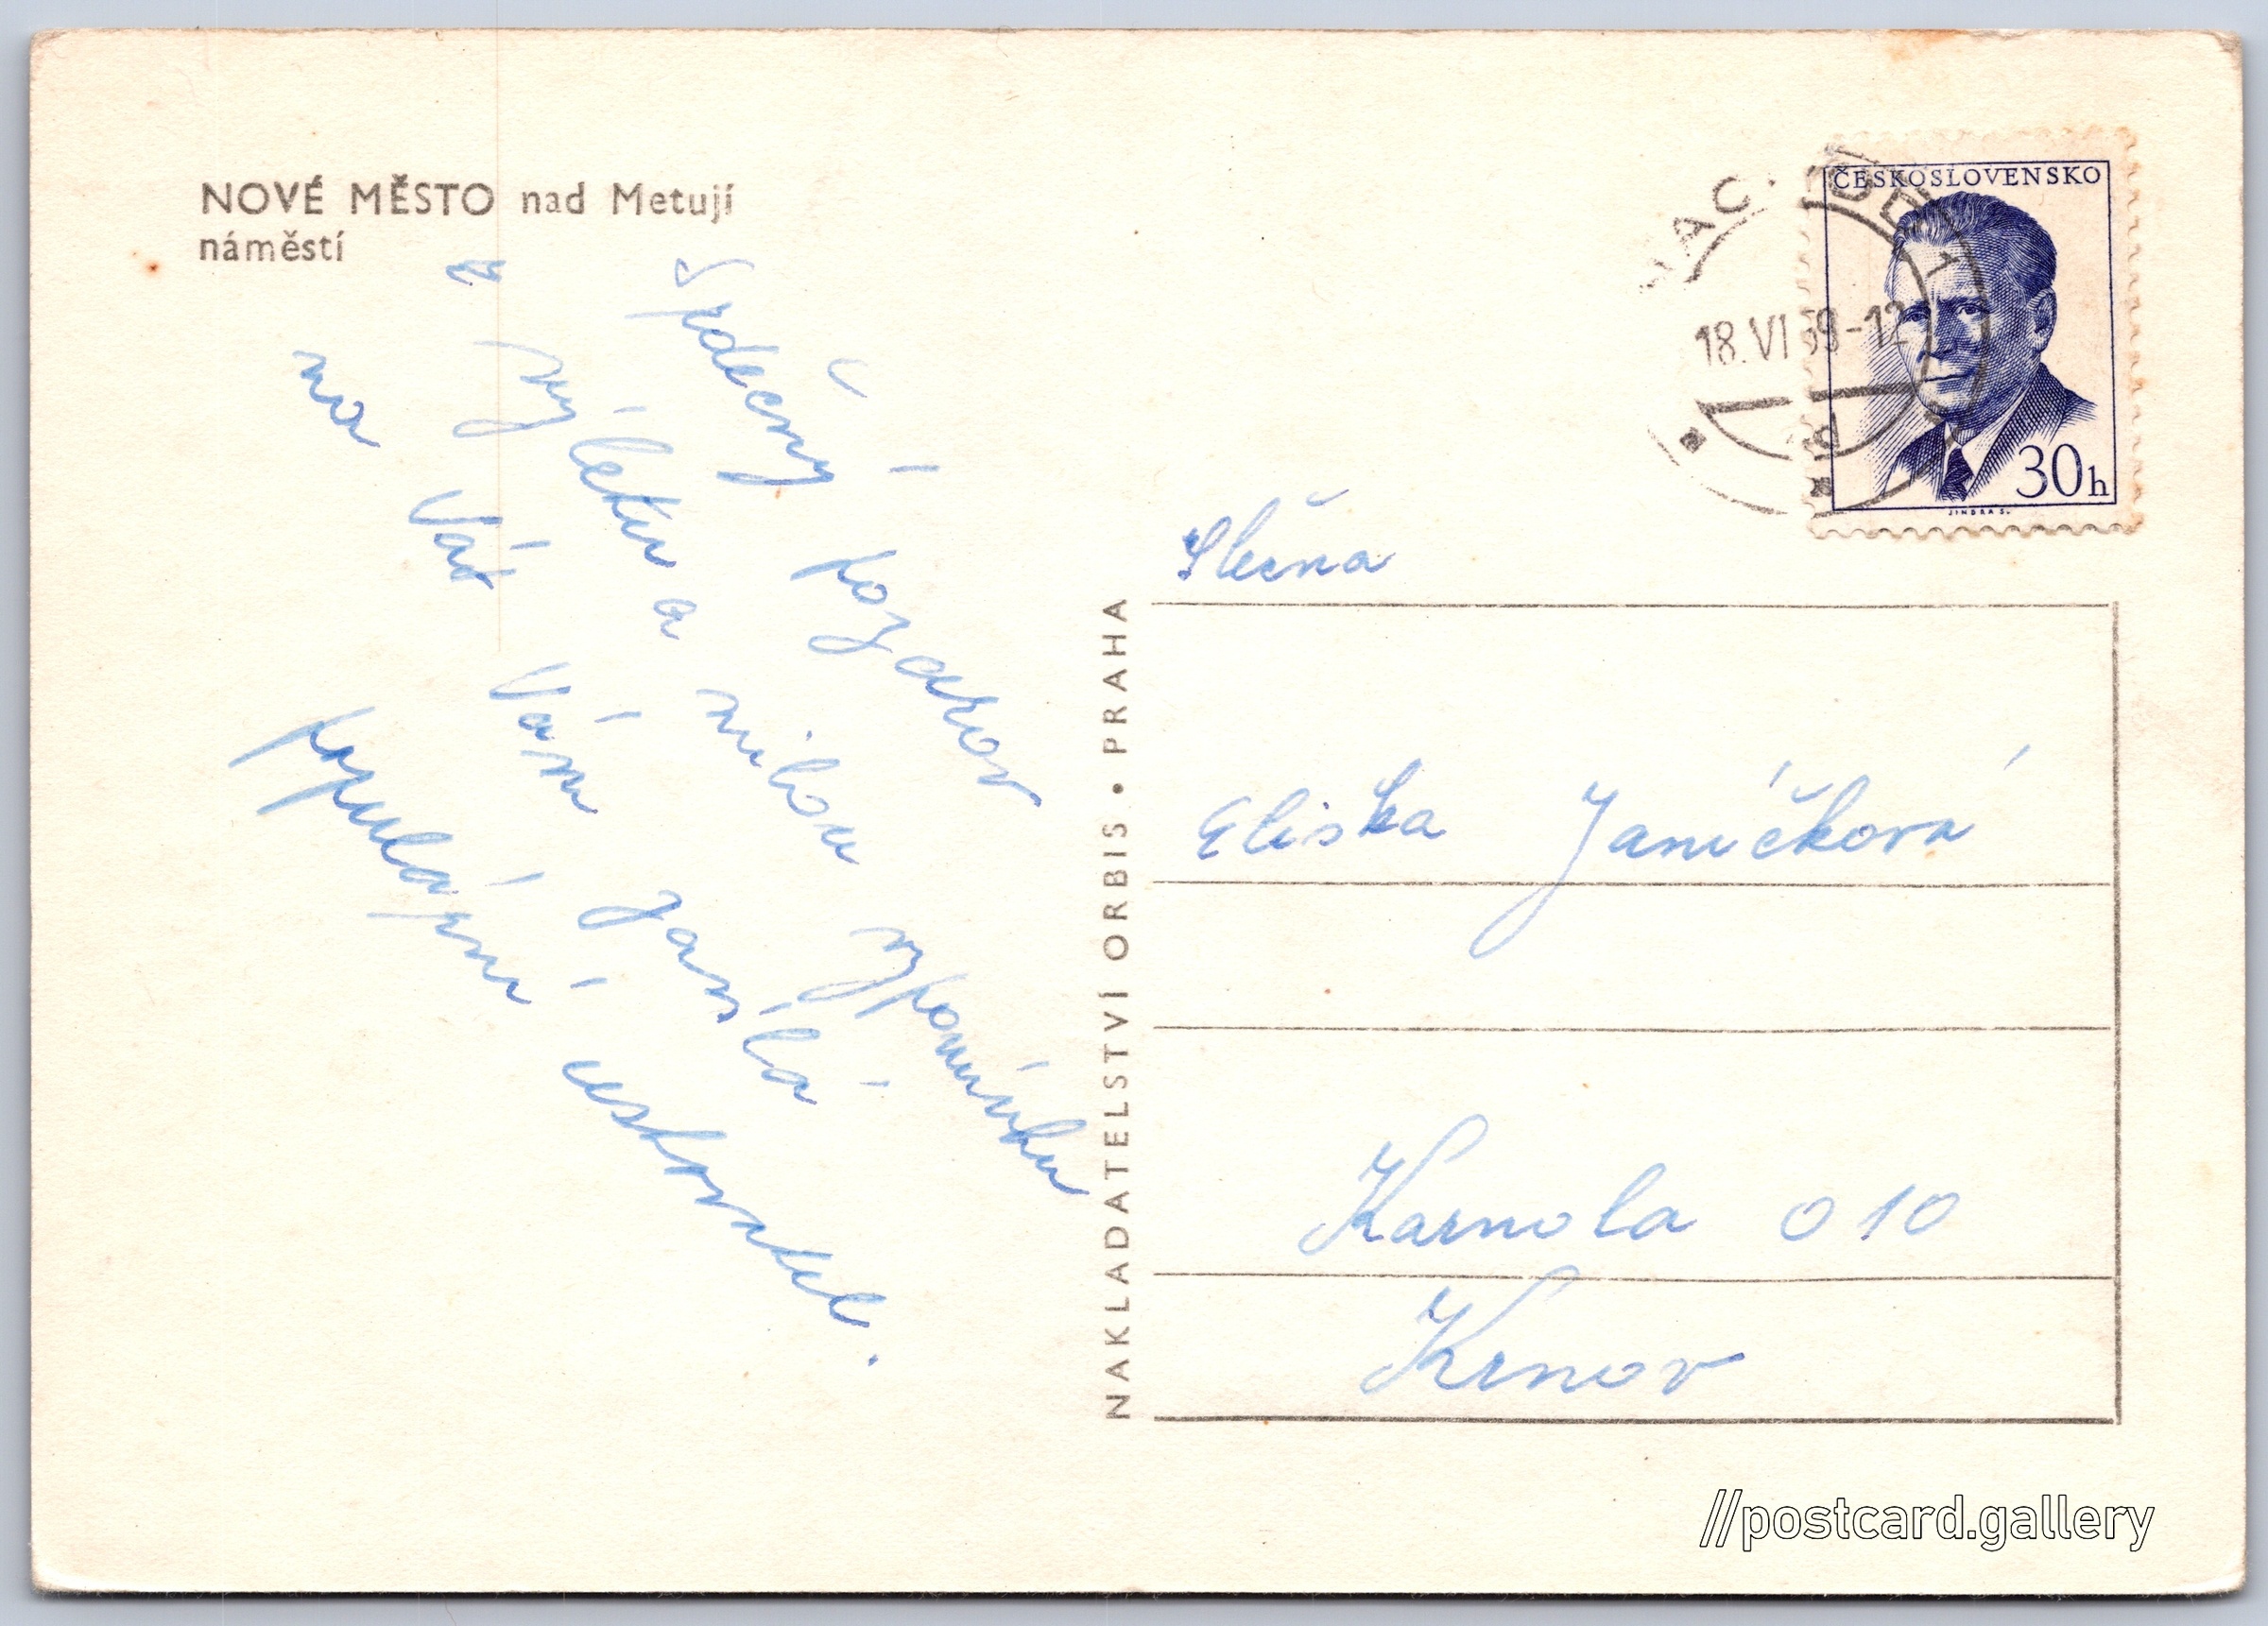 NOVÉ MĚSTO nad Metují
náměstí
Srdečný pozdrav
z výletu a milou vzpomínku
na Vás Vám zasílá
populární ustonatel.
NAKLADATELSTVÍ ORBIS • PRAHA
ČESKOSLOVENSKO
30h
JINDRA S.
18.VI 59-12
Slečna
Eliška Janíčková
Karnola 010
Krnov
//postcard.gallery